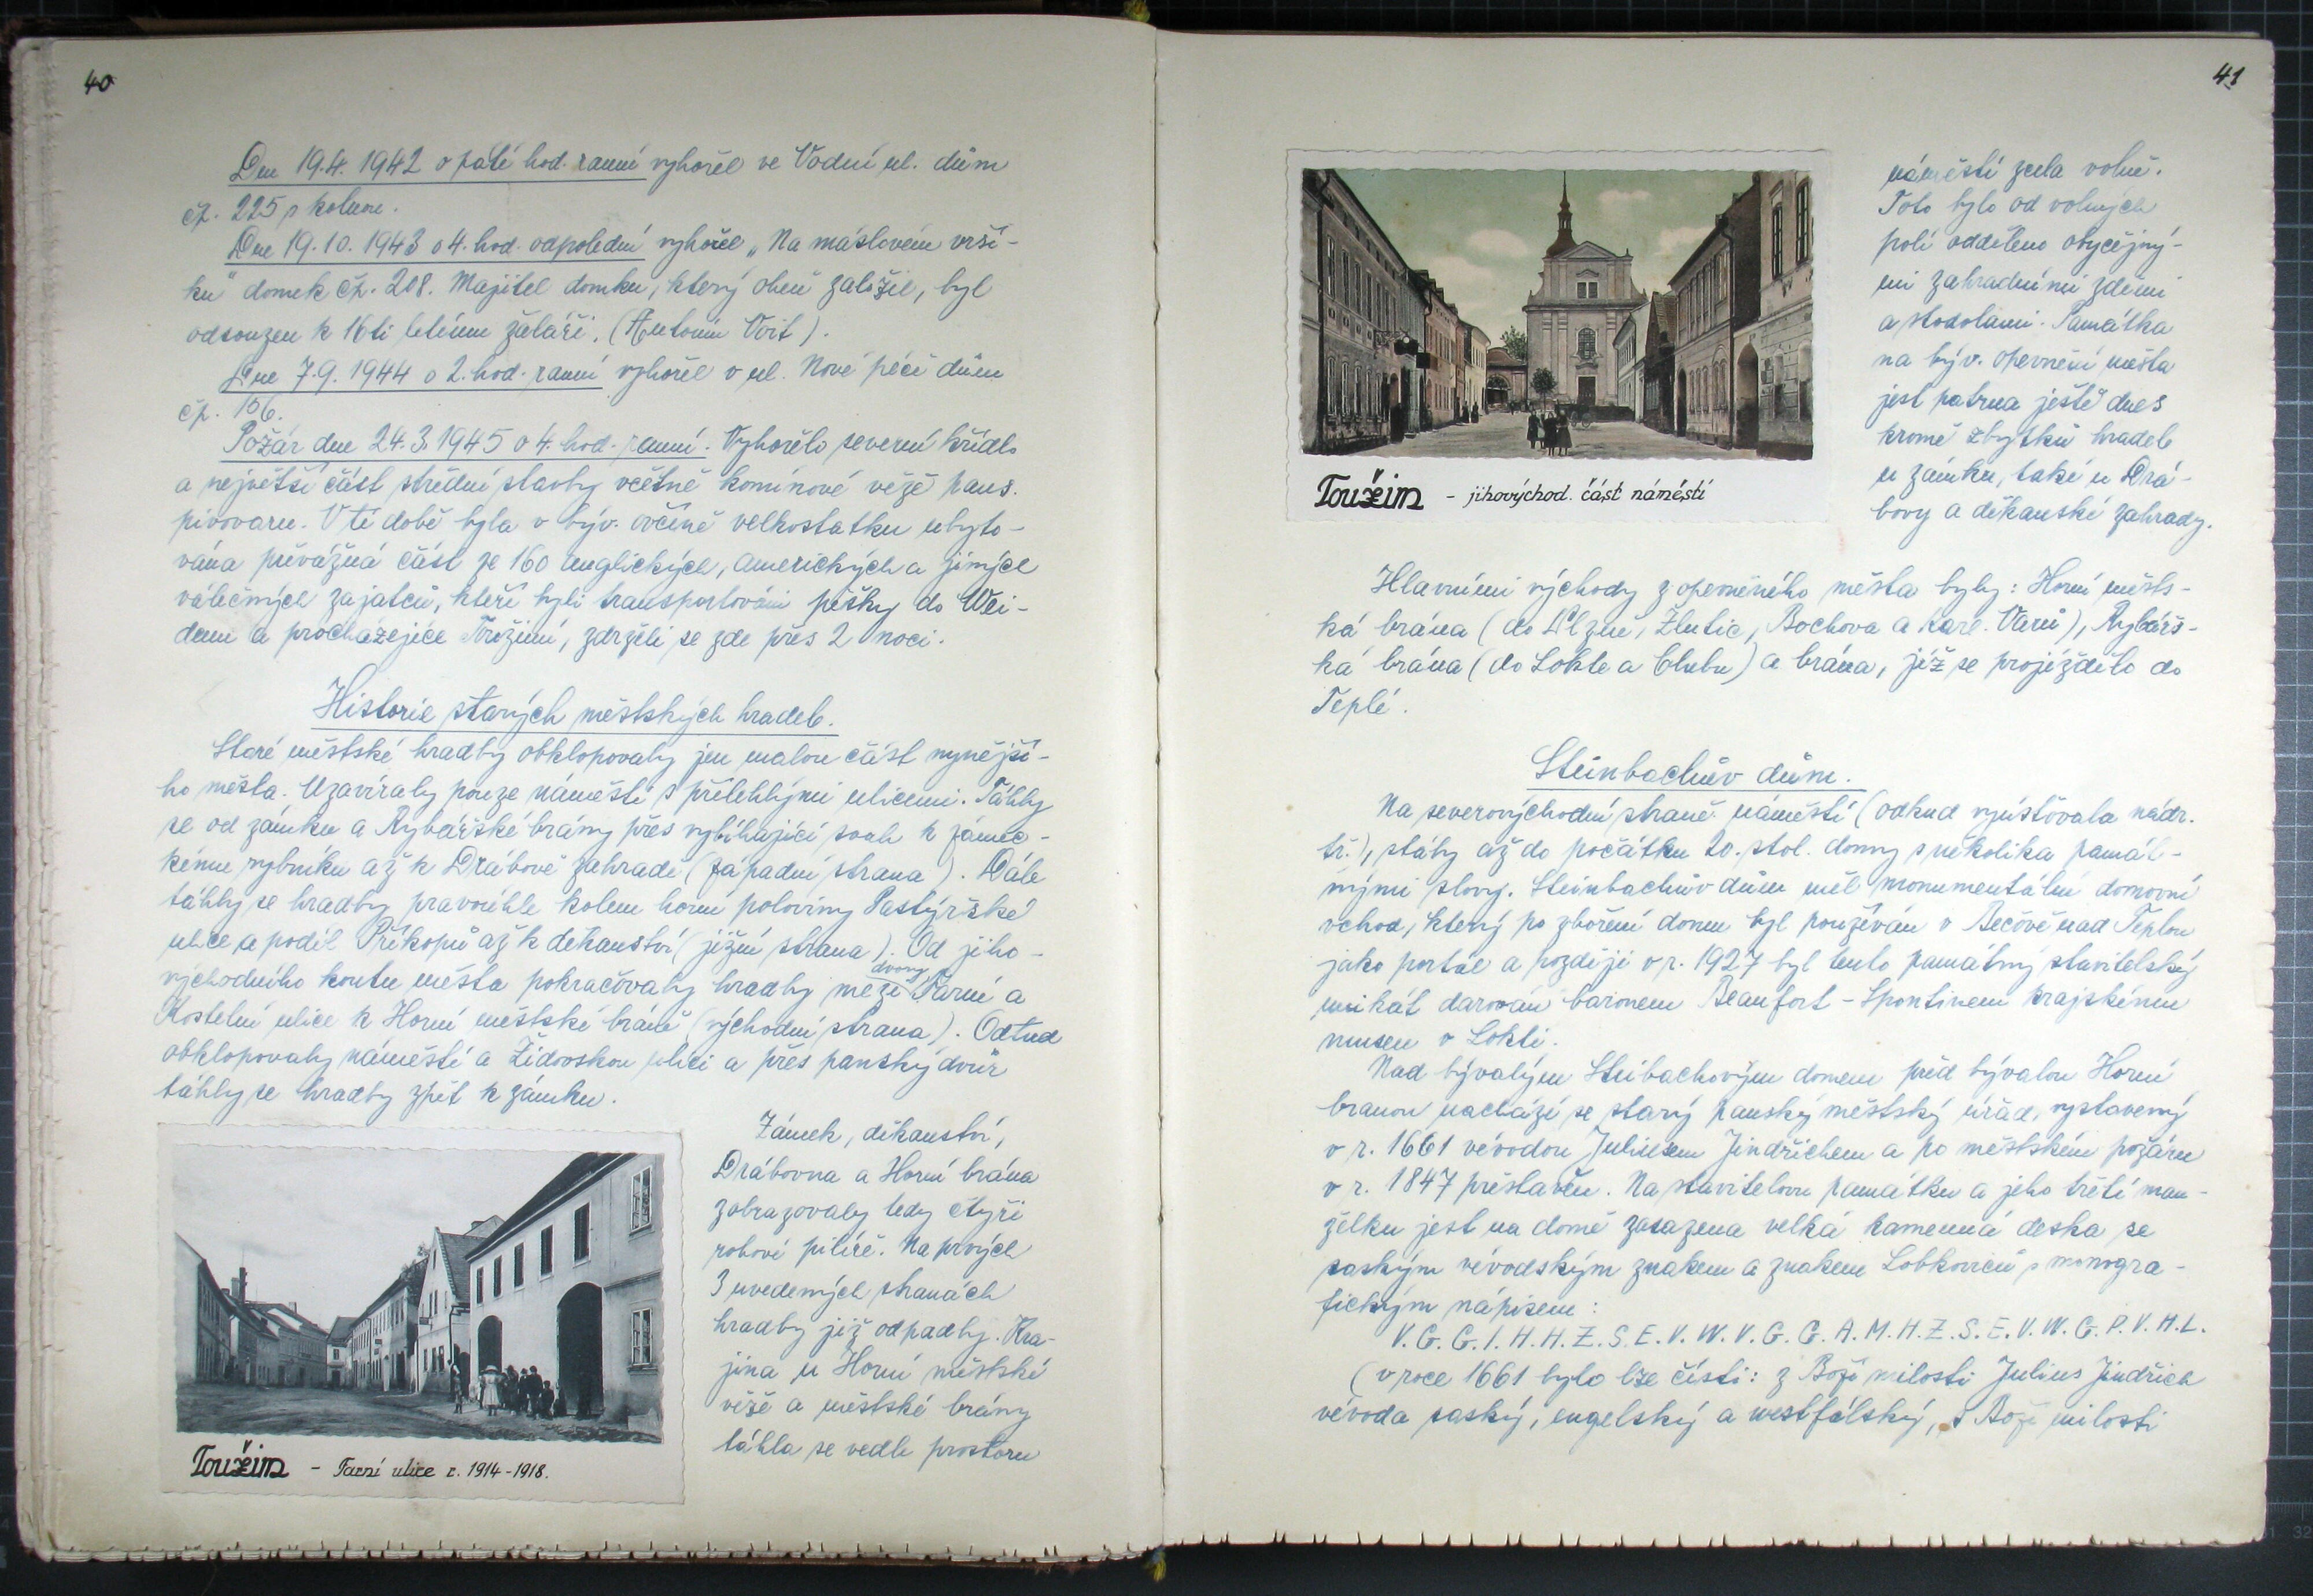 40
Dne 19.4. 1942 o páté hod. ranní vyhořel ve Vodní ul. dům
čp. 225 s kolnou.
Dne 19.10. 1943 o 4. hod. odpolední vyhořel „Na máslovém vrší-
ku" domek čp. 208. Majitel domku, který oheň založil, byl
odsouzen k 16ti letému žaláři. (Antonín Voit).
Dne 7.9. 1944 o 2. hod. ranní vyhořel v ul. Nové péče dům
čp. 156.
Požár dne 24.3.1945 o 4. hod. ranní. Vyhořelo severní křídlo
a největší část střední stavby včetně komínové věže pans.
pivovaru. V té době byla v býv. ovčíně velkostatku ubyto-
vána převážná část ze 160 anglických, amerických a jiných
válečných zajatců, kteří byli transportováni pěšky do Wei-
denu a procházejíce Toužimí, zdrželi se zde přes 2 noci.
Historie starých městských hradeb.
Staré městské hradby obklopovaly jen malou část nynější-
ho města. Uzavíraly pouze náměstí s přilehlými ulicemi. Táhly
se od zámku a Rybářské brány přes vybíhající svah k zámec-
kému rybníku až k Drábově zahradě (západní strana). Dále
táhly se hradby pravoúhle kolem horní poloviny Pastýřské
ulice a podél Příkopů až k děkanství (jižní strana). Od jiho-
východního koutu města pokračovaly hradby mezi dvory Farní a
Kostelní ulice k Horní městské bráně (východní strana). Odtud
obklopovaly náměstí a Židovskou ulici a přes panský dvůr
táhly se hradby zpět k zámku.
Zámek, děkanství,
Drábovna a Horní brána
zobrazovaly tedy čtyři
rohové pilíře. Na prvých
3 uvedených stranách
hradby již odpadly. Kra-
jina u Horní městské
věže a městské brány
táhla se vedle prostoru
Toužim - Farní ulice r. 1914-1918.
41
Toužim - jihovýchod. část náměstí
náměstí zcela volně.
Toto bylo od volných
polí odděleno obyčejný-
mi zahradními zděmi
a stodolami. Památka
na býv. opevnění města
jest patrna ještě dnes
kromě zbytků hradeb
u zámku, také u Drá-
bovy a děkanské zahrady.
Hlavními východy z opevněného města byly: Horní měst-
ká brána (do Plzně, Žlutic, Bochova a Karl. Varů), Rybářs-
ká brána (do Lokte a Chebu) a brána, jíž se projíždělo do
Teplé.
Steinbachův dům.
Na severovýchodní straně náměstí (odkud vyúsťovala nádr.
tř.), stály až do počátku 20. stol. domy s několika památ-
nými slovy. Steinbachův dům měl monumentální domovní
vchod, který po zboření domu byl používán v Bečově nad Teplou
jako portál a později v r. 1927 byl tento památný stavitelský
unikát darován baronem Beaufort-Spontinem krajskému
museu v Lokti.
Nad bývalým Steibachovým domem před bývalou Horní
branou nachází se starý panský městský úřad, vystavený
v r. 1661 vévodou Juliusem Jindřichem a po městském požáru
v r. 1847 přestavěn. Na stavitelovu památku a jeho třetí man-
želku jest na domě zasazena velká kamenná deska se
saským vévodským znakem a znakem Lobkoviců s monogra-
fickým nápisem:
V.G.G.I.H.H.Z.S.E.V.W.V.G.G.A.M.H.Z.S.E.V.W.G.P.V.H.L.
(v roce 1661 bylo lze čísti: z Boží milosti Julius Jindřich
vévoda saský, engelský a westfálský, z Boží milosti